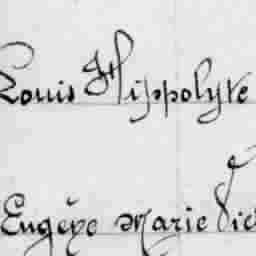 Louis Hippolyte
Eugène Marie Vic